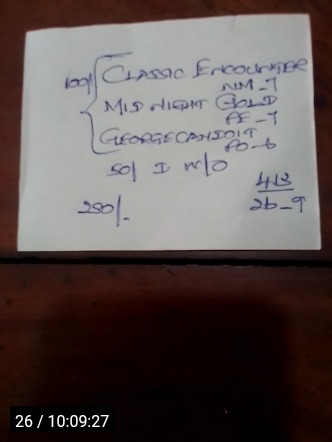 100/ CLASSIC ENCOUNTER
NM-7
MIDNIGHT GOLD
PE-7
GEORGECANDOIT
PO-6
50/ I W/O
413
250/-
26-9
26 / 10:09:27